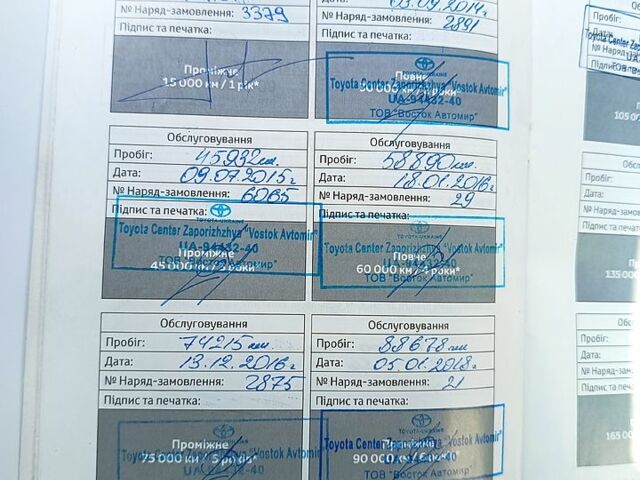 № Наряд-замовлення: 3379
Підпис та печатка:
Проміжне
15 000 км / 1 рік*
03.09.2014г
№ Наряд-замовлення: 2891
Підпис та печатка:
TOYOTA-UKRAINE
Повне
Toyota Center Zaporizhzhya "Vostok Avtomir"
30 000 км / 2 роки*
UA-94432-40
ТОВ "Восток Автомир"
Обслуговування
Пробіг: 45932км.
Дата: 09.07.2015г
№ Наряд-замовлення: 6065
Підпис та печатка:
TOYOTA-UKRAINE
Toyota Center Zaporizhzhya "Vostok Avtomir"
UA-94432-40
Проміжне
ТОВ "Восток Автомир"
45 000 км / 3 роки*
Обслуговування
Пробіг: 58890км
Дата: 18.01.2016г
№ Наряд-замовлення: 29
Підпис та печатка:
TOYOTA-UKRAINE
Toyota Center Zaporizhzhya "Vostok Avtomir"
Повне
UA-94432-40
60 000 км / 4 роки*
ТОВ "Восток Автомир"
Обслуговування
Пробіг: 74215км
Дата: 13.12.2016г
№ Наряд-замовлення: 2875
Підпис та печатка:
Проміжне
Toyota Center Zaporizhzhya "Vostok Avtomir"
75 000 км / 5 років*
UA-94432-40
Обслуговування
Пробіг: 88678км
Дата: 05.01.2018г
№ Наряд-замовлення: 21
Підпис та печатка:
TOYOTA-UKRAINE
Toyota Center Zaporizhzhya "Vostok Avtomir"
UA-94432-40
90 000 км /
ТОВ "Восток Автомир"
Пробіг:
Дата:
Toyota Center Zapo
№ Наряд
UA
Підпис
ТОВ
105 0
Пробіг:
Дата:
№ Наряд-з
Підпис та
135 000
Пробіг:
Дата:
№ Наряд-за
Підпис та п
165 00